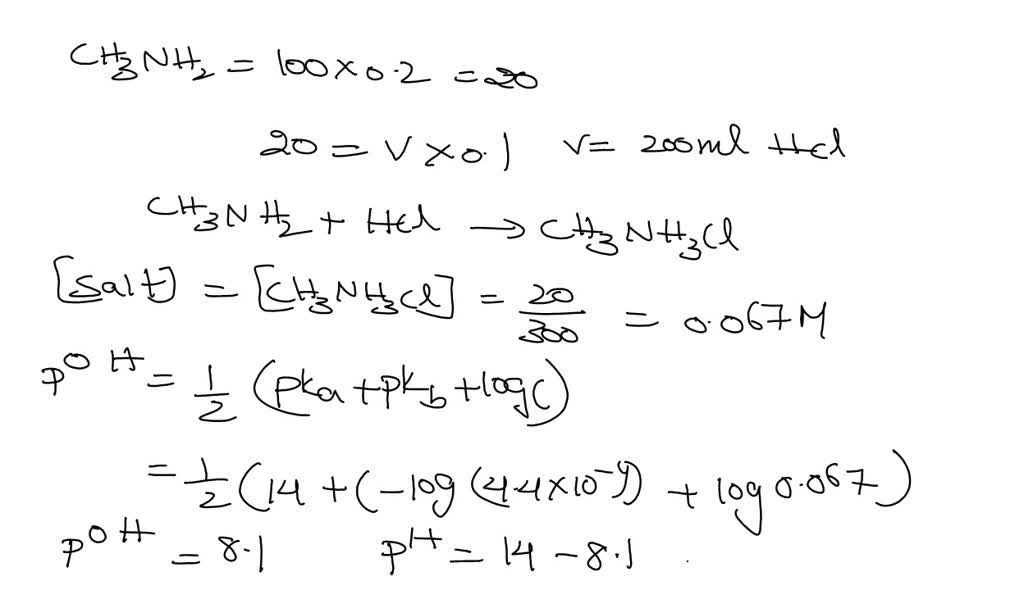 CH₃NH₂ = 100 × 0.2 = 20
20 = V × 0.1 V = 200ml Hcl
CH₃NH₂ + Hcl → CH₃NH₃Cl
[Salt] = [CH₃NH₃Cl] = 20/300 = 0.067M
pOH = 1/2 (pka + pkb + logc)
= 1/2 (14 + (-log (4.4×10⁻⁴)) + log 0.067)
pOH = 8.1 pH = 14 - 8.1